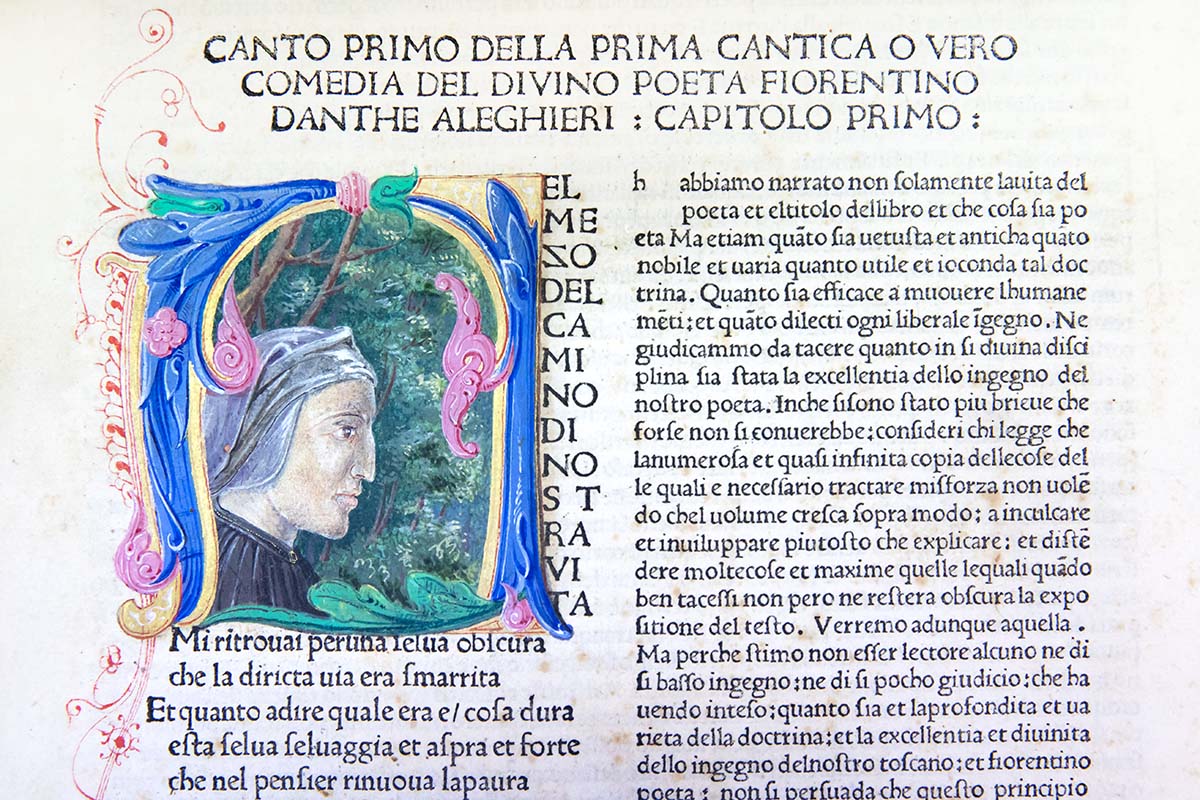 CANTO PRIMO DELLA PRIMA CANTICA O VERO
COMEDIA DEL DIVINO POETA FIORENTINO
DANTHE ALEGHIERI : CAPITOLO PRIMO :
N
EL
ME
ZO
DEL
CA
MI
NO
DI
NO
S T
RA
VI
TA
Mi ritrouai peruna ſelua obſcura
che la diricta uia era ſmarrita
Et quanto adire quale era e/ coſa dura
eſta ſelua ſeluaggia et aſpra et forte
che nel penſier rinuoua lapaura
h abbiamo narrato non ſolamente lauita del
poeta et eltitolo dellibro et che coſa ſia po
eta Ma etiam quāto ſia uetuſta et anticha quāto
nobile et uaria quanto utile et ioconda tal doc
trina. Quanto ſia efficace a muouere lhumane
mēti: et quāto dilecti ogni liberale īgegno. Ne
giudicammo da tacere quanto in ſi diuina diſci
plina ſia ſtata la excellentia dello ingegno del
noſtro poeta. Inche ſiſono ſtato piu brieue che
forſe non ſi conuerebbe: conſideri chi legge che
lanumeroſa et quaſi infinita copia dellecoſe del
le quali e neceſſario tractare miſforza non uolē
do chel uolume creſca ſopra modo: a inculcare
et inuiluppare piutoſto che explicare: et diſtē
dere moltecoſe et maxime quelle lequali quādo
ben taceſſi non pero ne reſtera obſcura la expo
ſitione del teſto. Verremo adunque aquella.
Ma perche ſtimo non eſſer lectore alcuno ne di
ſi baſſo ingegno: ne di ſi pocho giudicio: che ha
uendo inteſo: quanto ſia et laprofondita et ua
rieta della doctrina: et la excellentia et diuinita
dello ingegno delnoſtro toſcano: et fiorentino
poeta: non ſi perſuada che queſto principio